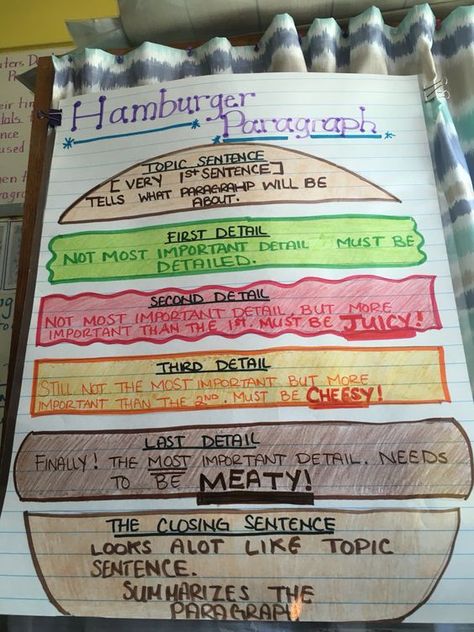 Hamburger
Paragraph
TOPIC SENTENCE
[VERY 1ST SENTENCE]
TELLS WHAT PARAGRAPHP WILL BE
ABOUT.
FIRST DETAIL
NOT MOST IMPORTANT DETAIL MUST BE
DETAILED.
SECOND DETAIL
NOT MOST IMPORTANT DETAIL, BUT MORE
IMPORTANT THAN THE 1ST. MUST BE JUICY!
THIRD DETAIL
STILL NOT THE MOST IMPORTANT BUT MORE
IMPORTANT THAN THE 2ND. MUST BE CHEESY!
LAST DETAIL
FINALLY! THE MOST IMPORTANT DETAIL. NEEDS
TO BE MEATY!
THE CLOSING SENTENCE
LOOKS ALOT LIKE TOPIC
SENTENCE.
SUMMARIZES THE
PARAGRAPH